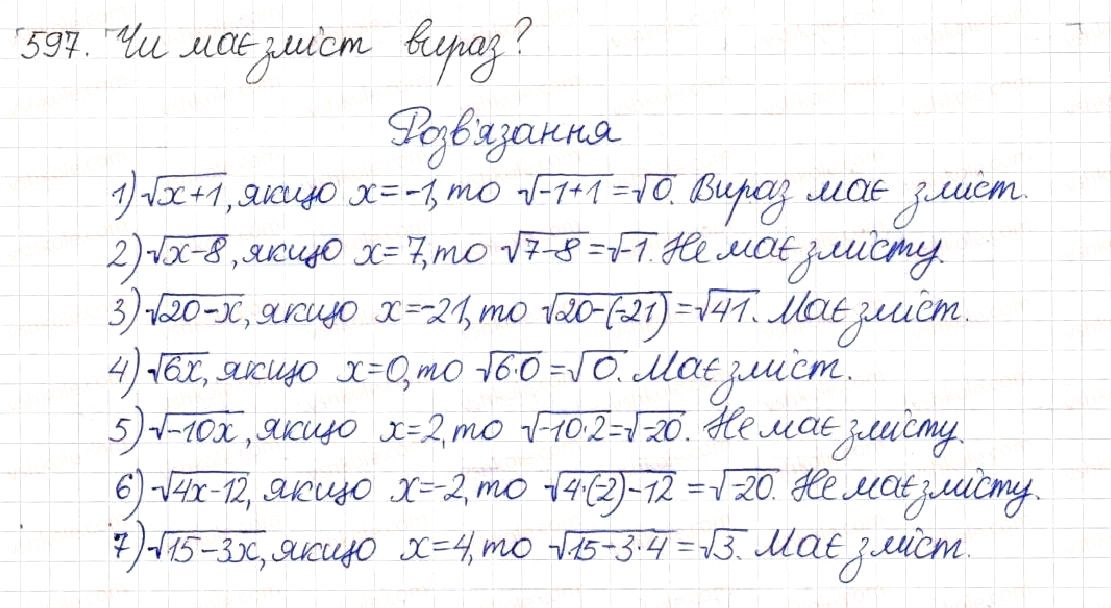 597. Чи має зміст вираз?
Розв'язання
1) √x+1, якщо x=-1, то √-1+1 = √0. Вираз має зміст.
2) √x-8, якщо x=7, то √7-8 = √-1. Не має змісту.
3) √20-x, якщо x=-21, то √20-(-21) = √41. Має зміст.
4) √6x, якщо x=0, то √6·0 = √0. Має зміст.
5) √-10x, якщо x=2, то √-10·2 = √-20. Не має змісту.
6) √4x-12, якщо x=-2, то √4·(-2)-12 = √-20. Не має змісту.
7) √15-3x, якщо x=4, то √15-3·4 = √3. Має зміст.